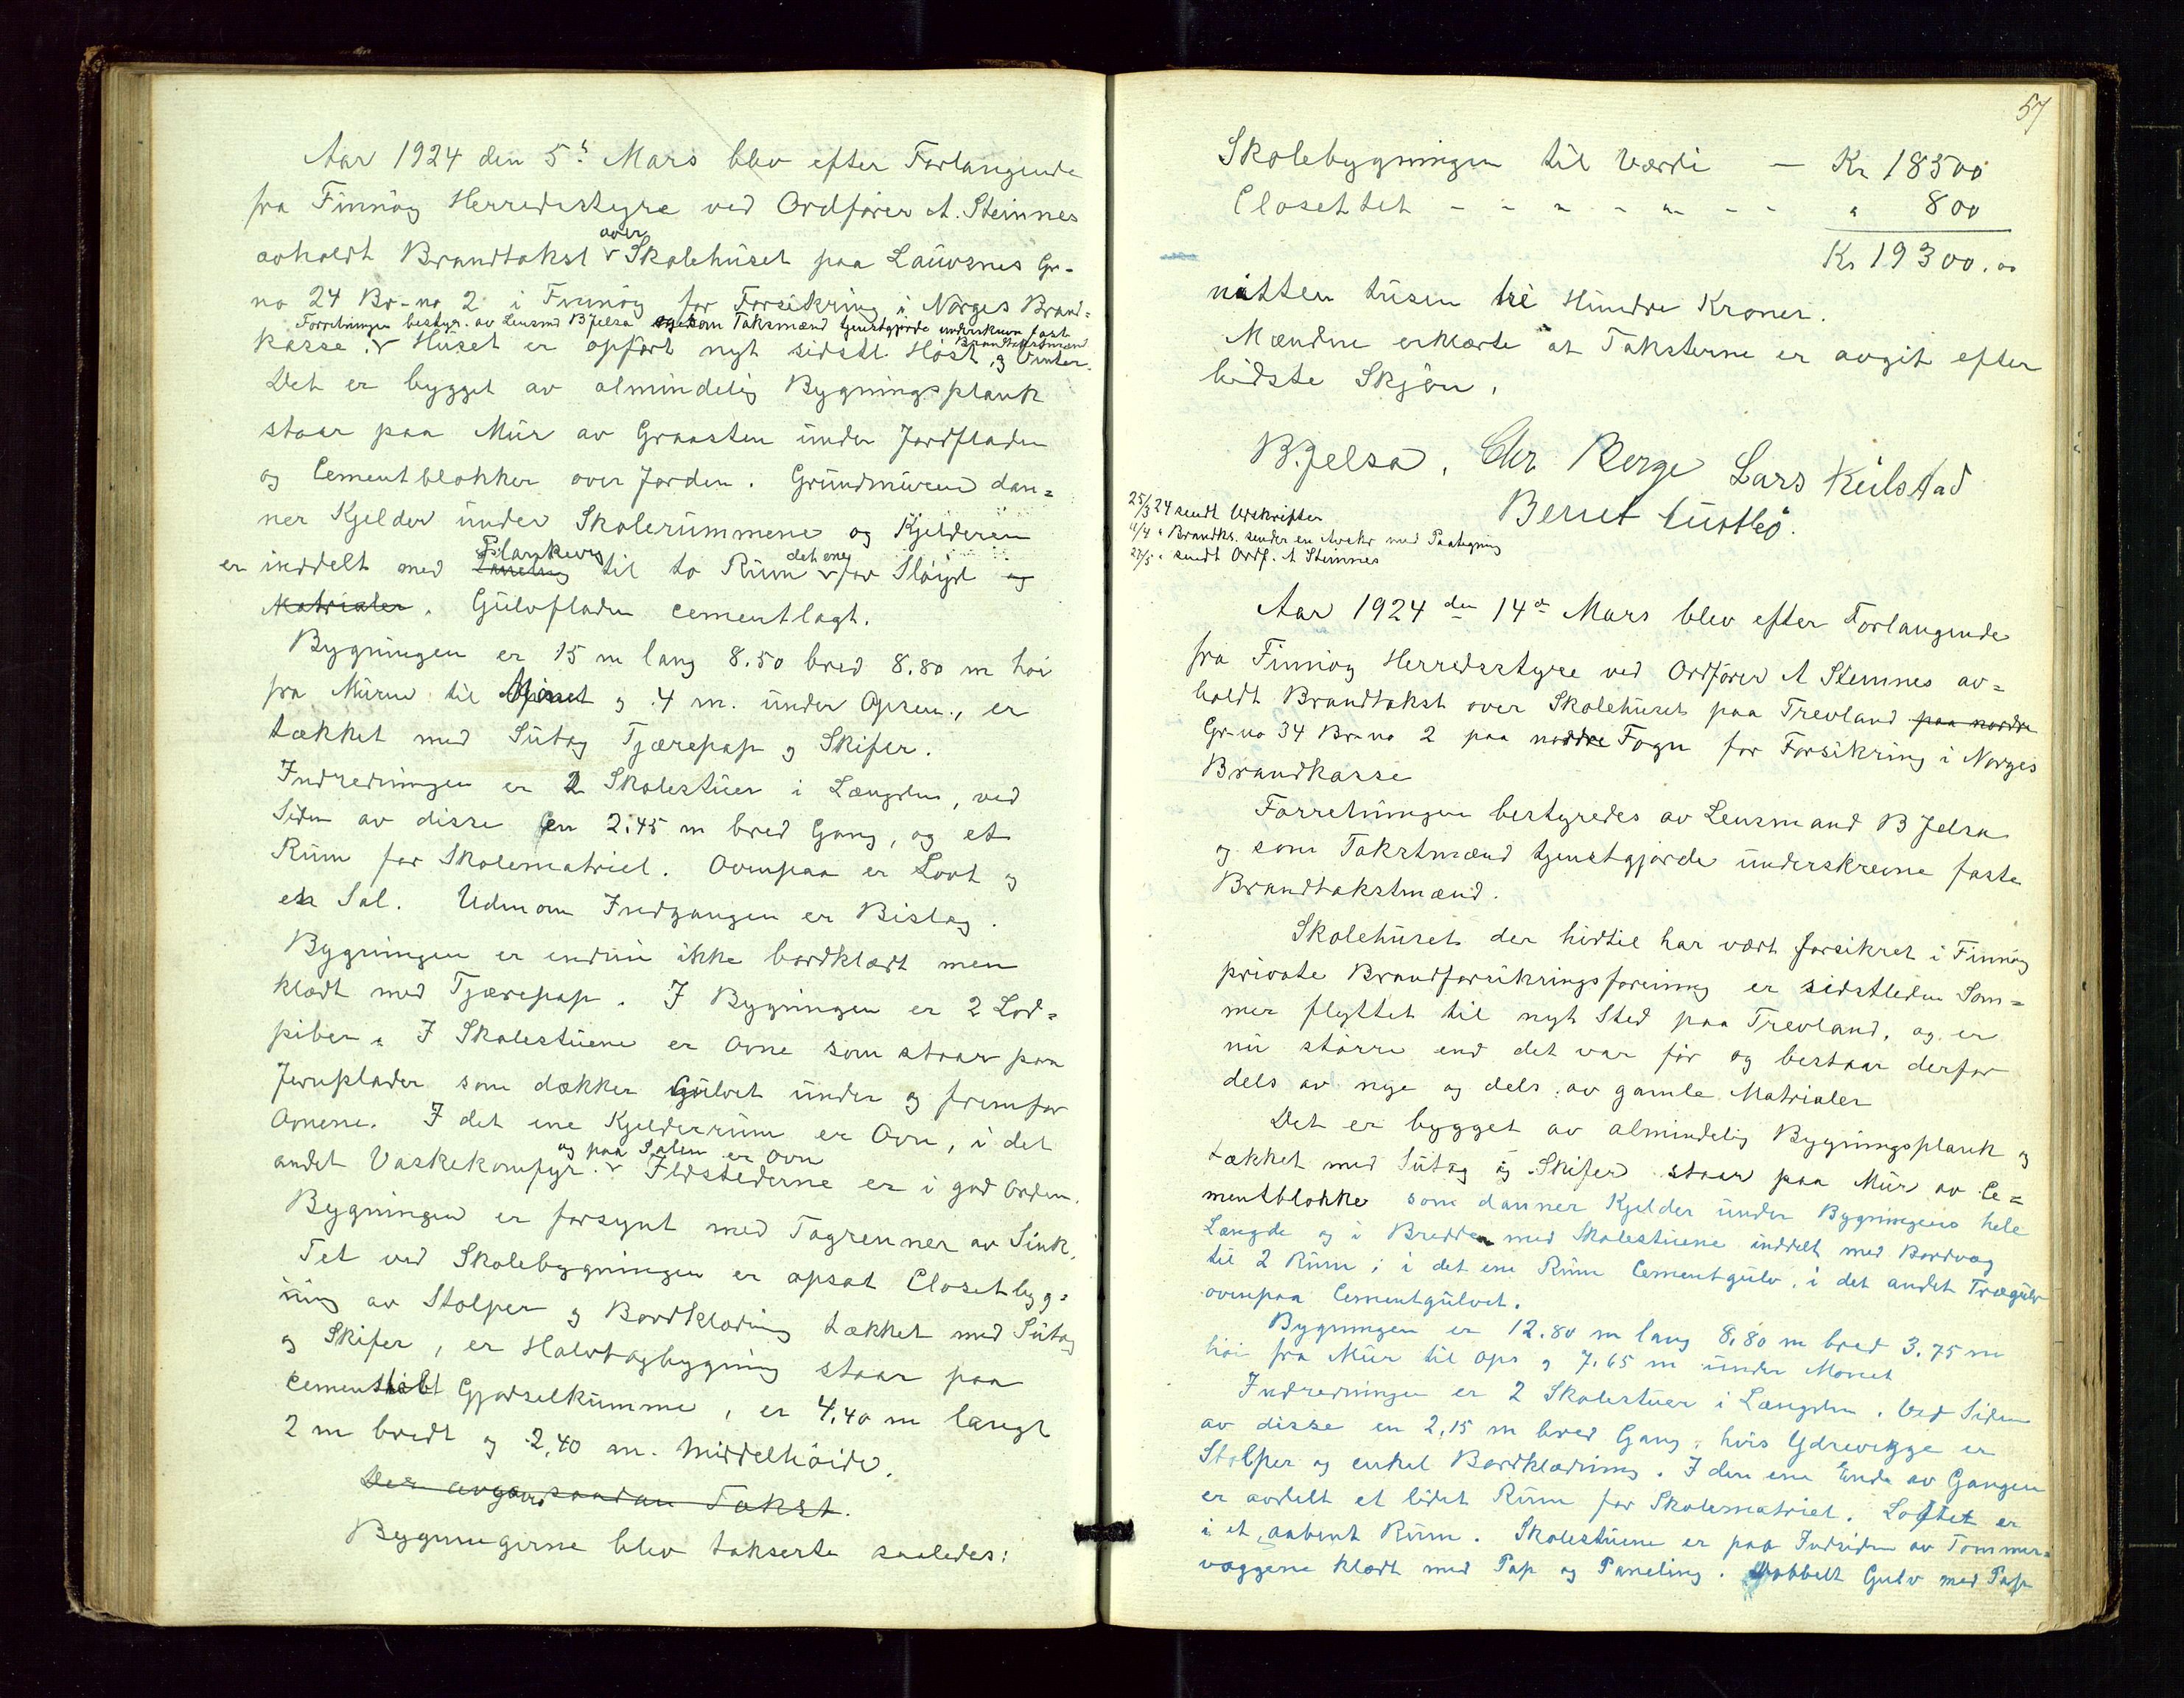 Aar 1924 den 5.' Mars blev efter Forlangende
fra Finnöy Herredsstyre ved Ordförer A. Steinnes
avholdt Brandtakst over Skolehuset paa Lauvsnes Gr-
no 24 Br-no 2 i Finnöy for Forsikring i Norges Brand-
Forretningen bestyr. av Lensmd B Jelsa og som Taksmænd tjenstgjorde underskrevn fast
Brandtakstmæn
kasse. Huset er opfört nyt sidste Höst og Vinter.
Det er bygget av almindelig Bygningsplank
staar paa Mur av Graasten under Jordfladen
og Cementblokker over Jorden. Grundmuren dan=
ner Kjelder under Skolerummene og Kjelderen
er inddelt med Plankevæg til to Rum det ene for Slöyd og
Matrialer. Gulvfladen cementlagt.
Bygningen er 15 m lang 8.50 bred 8.80 m höi
fra Muren til Mönet og 4 m. under Opsen, er
tækket med Sutag Tjærepap og Skifer.
Indredningen er 2 Skolestuer i Længden, ved
Siden av disse en 2.45 m bred Gang, og et
Rum for Skolematriel. Ovenpaa er Lovt og
en Sal. Udenom Indgangen er Bislag.
Bygningen er endnu ikke bordklædt men
klædt med Tjærepap. I Bygningen er 2 Lod=
piber. I Skolestuene er Ovne som staar paa
Jernplader som dækker Gulvet under og fremfor
Ovnene. I det ene Kjelderrum er Ovn, i det
andet Vaskekomfyr. og paa Salen er Ovn Ildstederne er i god Orden.
Bygningen er forsynt med Tagrenner av Sink.
Tet ved Skolebygningen er opsat Closetbyg=
ning av Stolper og Bordklædning tækket med Sutag
og Skifer, er Halvtagbygning staar paa
Cementstöbt Gjödselkumme, er 4,40 m langt
2 m bredt og 2,40 m. Middelhöide.
Der avgaves saadan Takst.
Bygningerne blev takserte saaledes:
57
Skolebygningen til Værdi — Kr 18500
Closettet - - " - " - - " 800
Kr 19300.00
nitten tusen tre Hundre Kroner.
Mændene erklærte at Taksterne er avgit efter
bedste Skjön.
B. Jelsa. Chr Berge Lars Keilstad
Bernt Lustbö.
25/3 24 sendt Udskrifter
11/4 " Brandks. sender en Avskr med Paategning
27/5 " sendt Ordf. A Steinnes
Aar 1924 den 14de Mars blev efter Forlangende
fra Finnöy Herredsstyre ved Ordförer A Steinnes av=
holdt Brandtakst over Skolehuset paa Trevland paa nordre
Gr-no 34 Br-no 2 paa nordre Fogn for Forsikring i Norges
Brandkasse
Forretningen bestyredes av Lensmand B Jelsa
og som Takstmænd tjenstgjorde underskrevne faste
Brandtakstmænd.
Skolehuset der hidtil har vært forsikret i Finnöy
private Brandforsikringsforening er sidstleden Som=
mer flyttet til nyt Sted paa Trevland, og er
nu större end det var för og bestaar derfor
dels av nye og dels av gamle Matrialer
Det er bygget av almindelig Bygningsplank og
tækket med Sutag og Skifer staar paa Mur av Ce=
mentblokke som danner Kjelder under Bygningens hele
Længde og i Bredden med Skolestuene inddelt med Bordvæg
til 2 Rum; i det ene Rum Cementgulv, i det andet Trægulv
ovenpaa Cementgulvet.
Bygningen er 12.80 m lang 8,80 m bred 3.75 m
höi fra Mur til Ops og 7.65 m under Mönet
Indredningen er 2 Skolestuer i Længden. Ved Siden
av disse en 2,15 m bred Gang, hvis Ydrevegge er
Stolper og enkel Bordklædning. I den ene Ende av Gangen
er avdelt et lidet Rum for Skolematriel. Loftet er
i et aabent Rum. Skolestuene er paa Indsiden av Tömmer=
væggene klædt med Pap og Paneling. Dobbelt Gulv med Pap